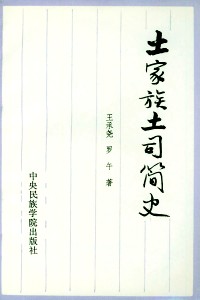 土家族土司简史
王承尧 罗午 著
中央民族学院出版社